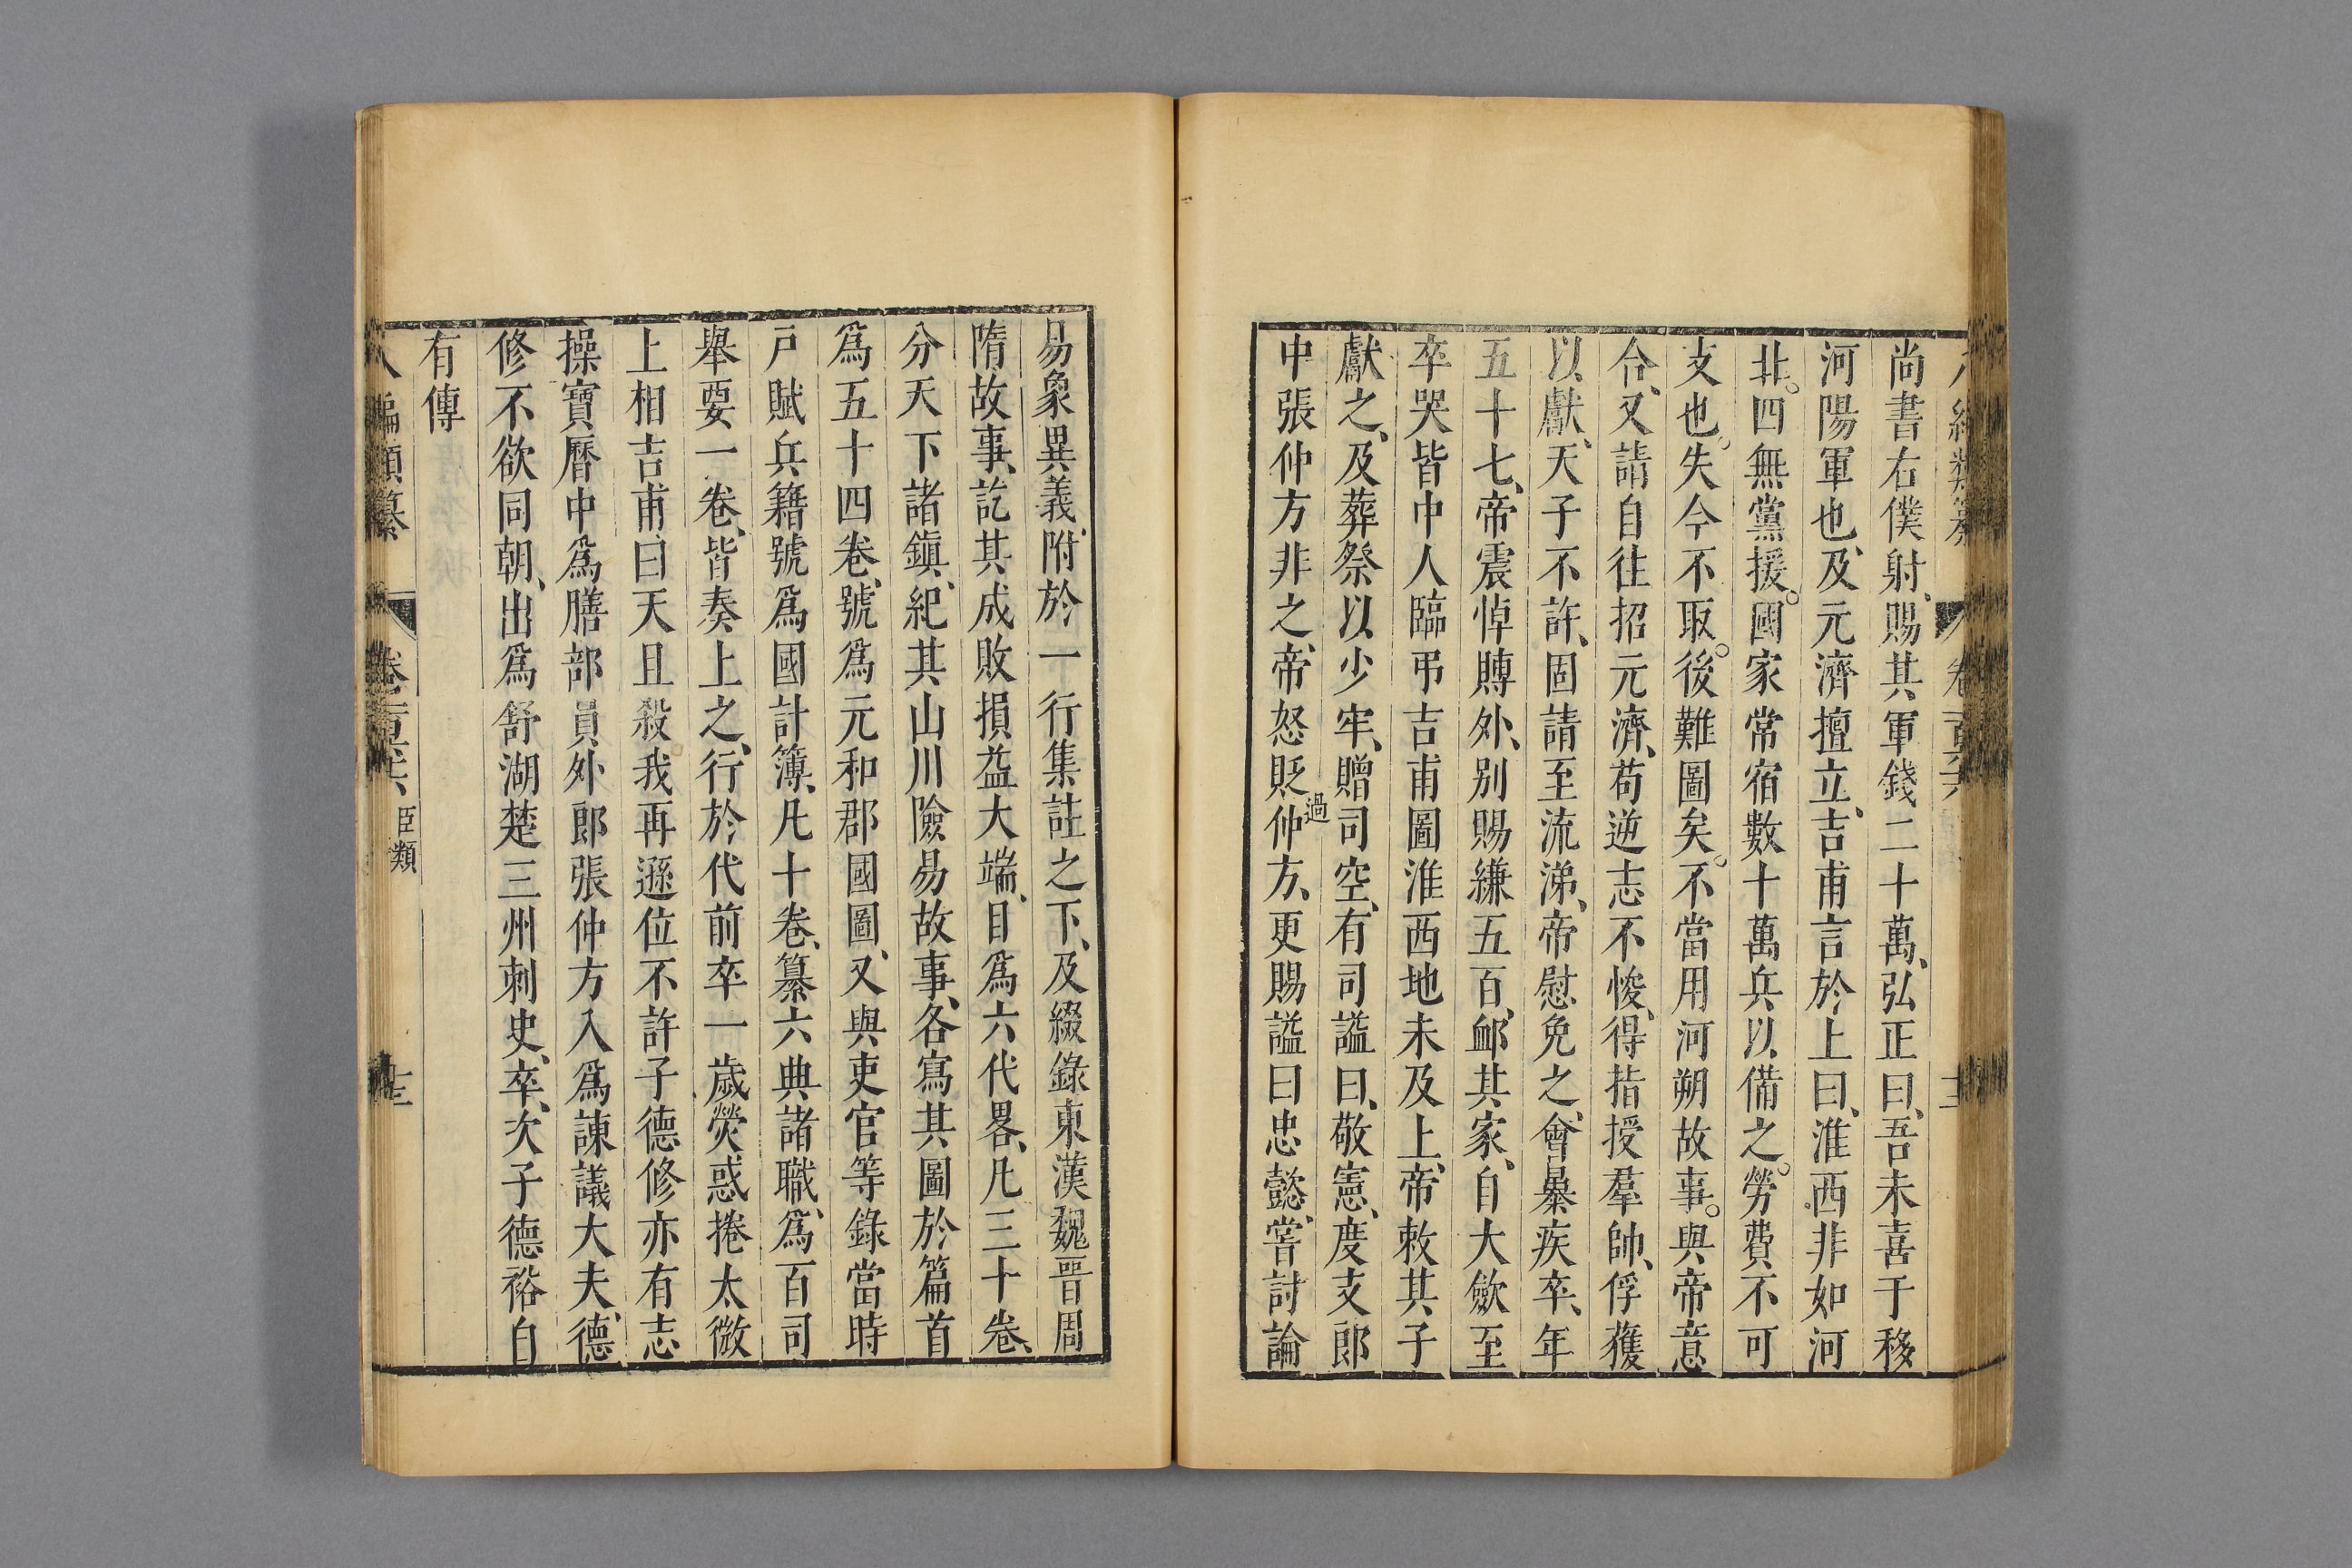 尚書右僕射、賜其軍錢二十萬、弘正曰、吾未喜于移
河陽軍也、及元濟擅立、吉甫言於上曰、淮西非如河
北。四無黨援。國家常宿數十萬兵以備之。勞費不可
支也。失今不取。後難圖矣。不當用河朔故事。與帝意
合、又請自往招元濟、苟逆志不悛、得指授羣帥、俘獲
以獻、天子不許、固請至流涕、帝慰免之、會暴疾卒、年
五十七、帝震悼賻外、別賜縑五百、卹其家、自大斂至
卒哭皆中人臨弔吉甫圖淮西地未及上、帝敕其子
獻之、及葬祭以少牢、贈司空、有司謚曰、敬憲、度支郎
中張仲方非之、帝怒貶仲方、更賜謚曰忠懿、嘗討論
過
易象異義、附於一行集註之下、及綴錄東漢魏晉周
隋故事、訖其成敗損益大端、目爲六代畧、凡三十卷、
分天下諸鎮、紀其山川險易故事、各寫其圖於篇首
爲五十四卷、號爲元和郡國圖、又與吏官等錄當時
戸賦兵籍號爲國計簿、凡十卷、纂六典諸職、爲百司
舉要一卷、皆奏上之、行於代前卒一歲熒惑掩太微
上相吉甫曰天且殺我再遜位不許子德修亦有志
操寶曆中爲膳部員外郎張仲方入爲諫議大夫、德
修不欲同朝、出爲舒湖楚三州刺史、卒、次子德裕自
有傳
八編類纂 卷一百六 臣類 十三